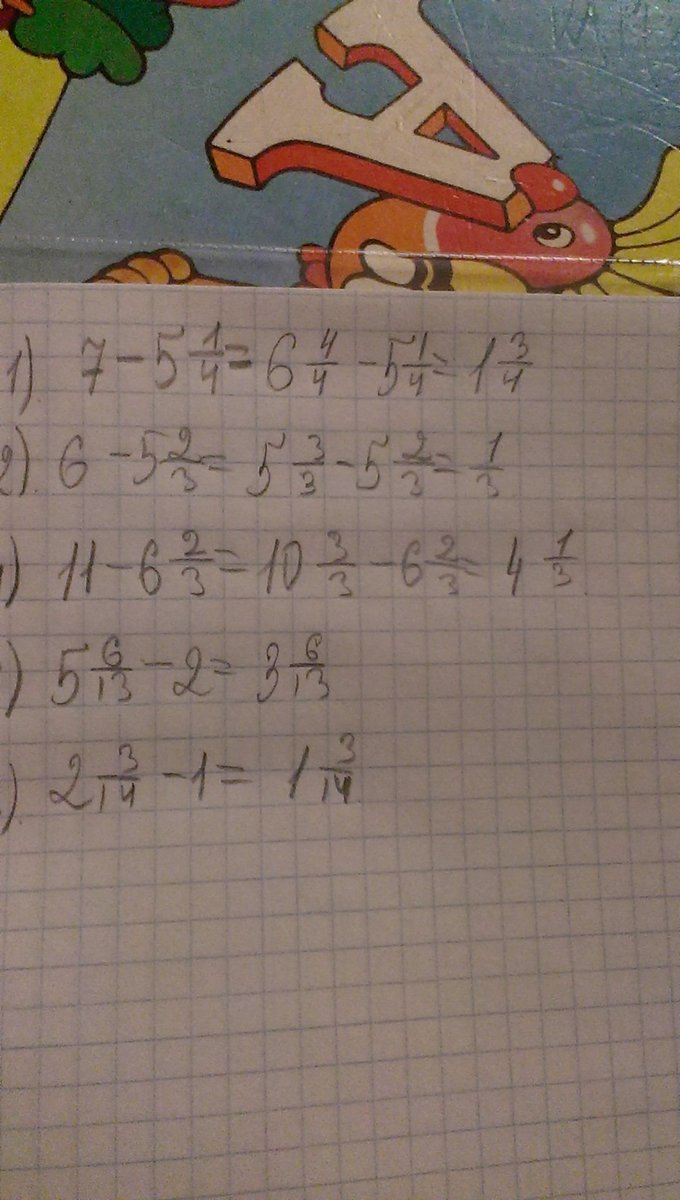 1) 7 - 5 1/4 = 6 4/4 - 5 1/4 = 1 3/4
2) 6 - 5 2/3 = 5 3/3 - 5 2/3 = 1/3
) 11 - 6 2/3 = 10 3/3 - 6 2/3 = 4 1/3
) 5 6/13 - 2 = 3 6/13
) 2 3/14 - 1 = 1 3/14